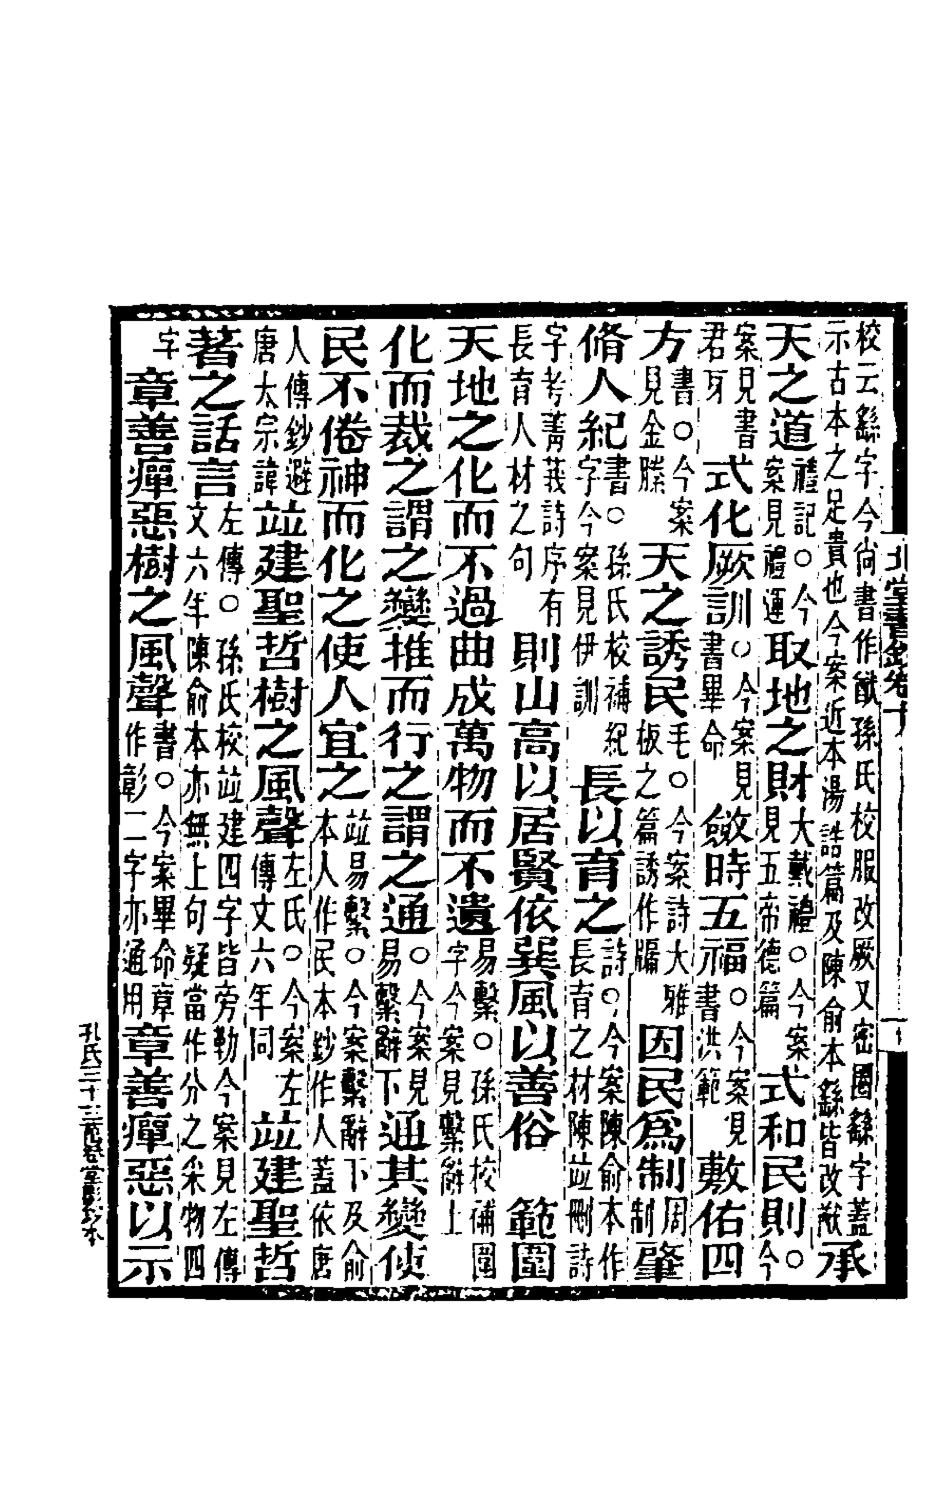 校云繇字今尚書作猷孫氏校服改厥又宻圈繇字蓋示古本之足貴也今案近本湯誥篇及陳俞本繇皆改猷承
天之道禮記○今案見禮運取地之財大戴禮○今案見五帝德篇式和民則○今
案見書君牙式化厥訓○今案見書畢命斂時五福○今案見書洪範敷佑四
方書○今案見金縢天之誘民毛○今案詩大雅板之篇誘作牖因民爲制周制肇
脩人紀書○孫氏校補紀字今案見伊訓長以育之詩○今案陳俞本作長育之材陳竝刪詩
字考菁莪詩序有長育人材之句則山高以居賢依巽風以善俗範圍
天地之化而不過曲成萬物而不遺易繫○孫氏校補圍字今案見繫辭上
化而裁之謂之變推而行之謂之通○今案見易繫辭下通其變使
民不倦神而化之使人宜之竝易繫○今案繫辭下及俞本人作民本鈔作人蓋依唐
人傳鈔避唐太宗諱竝建聖哲樹之風聲左氏○今案左傳文六年同竝建聖哲
著之話言左傳○孫氏校竝建四字皆旁勒今案見左傳文六年陳俞本亦無上句疑當作分之采物四
字章善癉惡樹之風聲書○今案畢命章作彰二字亦通用章善癉惡以示
北堂書鈔卷十
孔氏三十三萬卷堂影鈔本